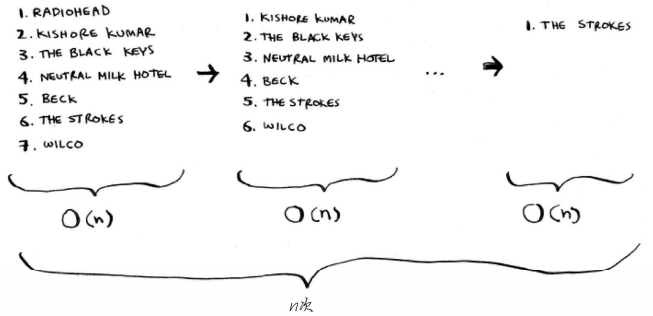 1. RADIOHEAD
2. KISHORE KUMAR
3. THE BLACK KEYS
4. NEUTRAL MILK HOTEL
5. BECK
6. THE STROKES
7. WILCO
1. KISHORE KUMAR
2. THE BLACK KEYS
3. NEUTRAL MILK HOTEL
4. BECK
5. THE STROKES
6. WILCO
...
1. THE STROKES
O(n)
O(n)
O(n)
n次